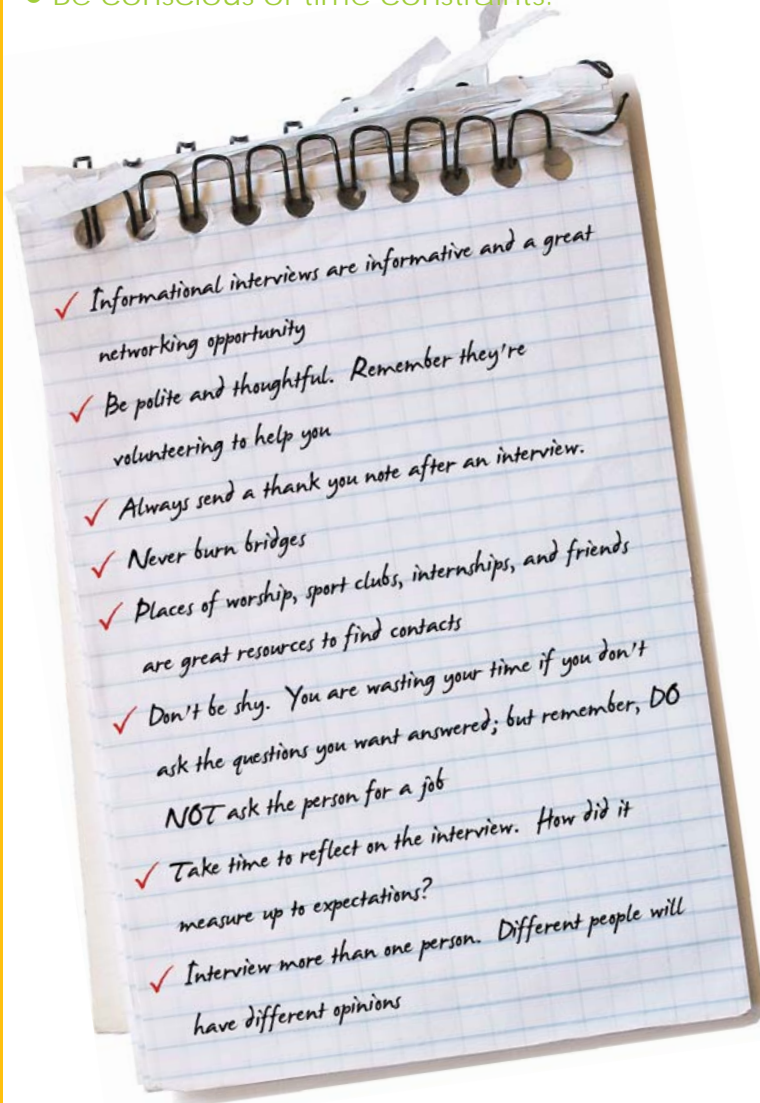 Be conscious of time constraints.
✓ Informational interviews are informative and a great
networking opportunity
✓ Be polite and thoughtful. Remember they're
volunteering to help you
✓ Always send a thank you note after an interview.
✓ Never burn bridges
✓ Places of worship, sport clubs, internships, and friends
are great resources to find contacts
✓ Don't be shy. You are wasting your time if you don't
ask the questions you want answered; but remember, DO
NOT ask the person for a job
✓ Take time to reflect on the interview. How did it
measure up to expectations?
✓ Interview more than one person. Different people will
have different opinions